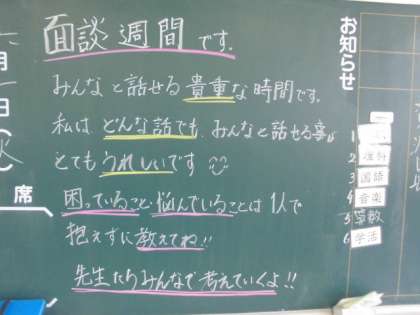 面談週間です。
みんなと話せる貴重な時間です。
私はどんな話でも、みんなと話せる事が
とてもうれしいです
困っていること・悩んでいることは1人で
抱えずに教えてね!!
先生たちみんなで考えていくよ!!
お知らせ
1
2 理科
3 国語
4 音楽
5 算数
6 学活
月
日
席